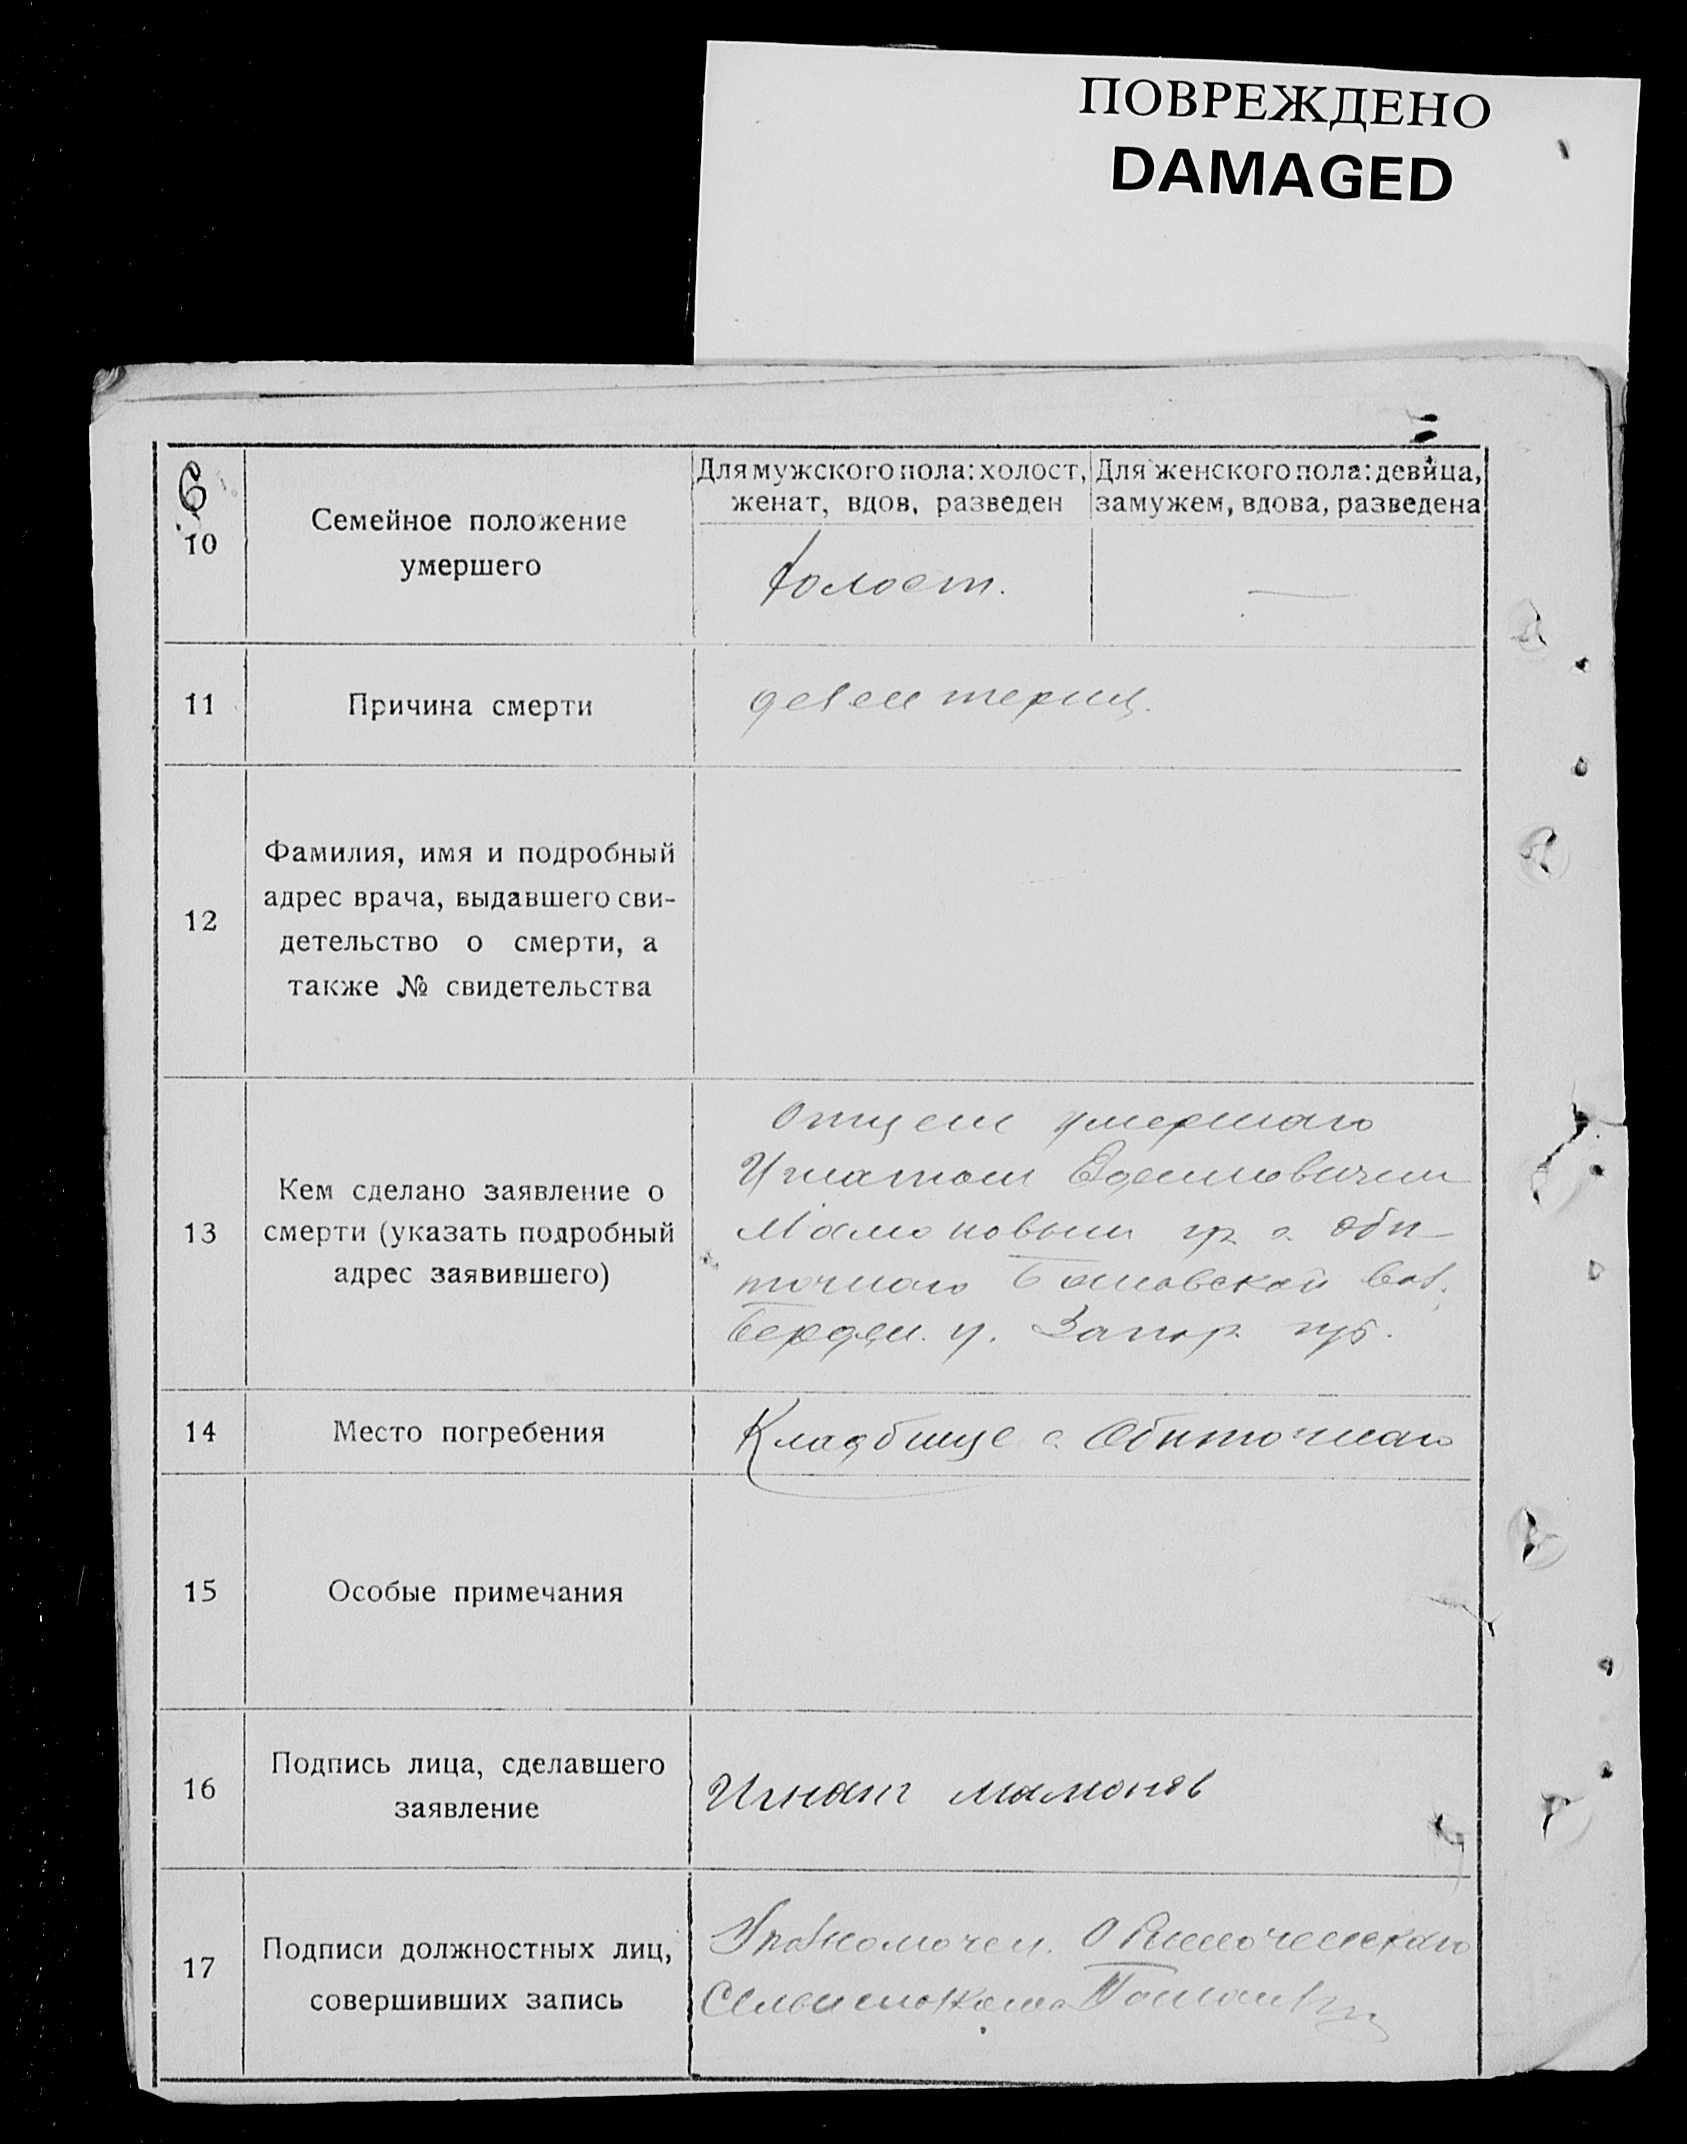 ПОВРЕЖДЕНО
DAMAGED
6
10
Семейное положение
умершего
Для мужского пола: холост,
женат, вдов, разведен
Для женского пола: девица,
замужем, вдова, разведена
Холост.
—
11
Причина смерти
12
Фамилия, имя и подробный
адрес врача, выдавшего сви-
детельство о смерти, а
также № свидетельства
13
Кем сделано заявление о
смерти (указать подробный
адрес заявившего)
Отцем умершаго
Игнатом
Мамоновым гр. с. Оби-
точнаго
Бердян. у. Запор. губ.
14
Место погребения
Кладбище с. Обиточнаго
15
Особые примечания
16
Подпись лица, сделавшего
заявление
Игнат Мамонов
17
Подписи должностных лиц,
совершивших запись